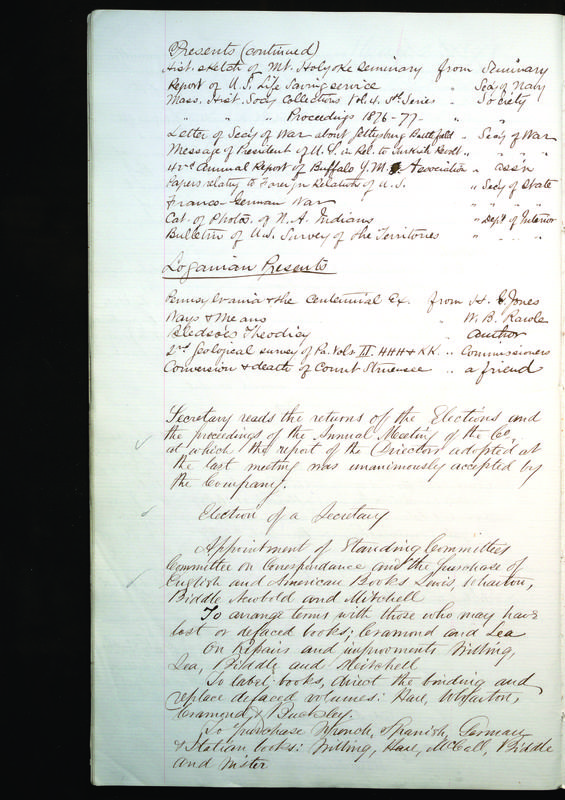 Presents (continued)
Hist. sketch of Mt. Holyoke Seminary from Seminary
Report of U.S. Life Saving service " Secy of Navy
Mass. Hist. Socy Collections Vol. 4. 5th Series " Society
" " " Proceedings 1876-77 "
Letter of Secy of War about Gettysburg Battlefield " Secy of War
Message of President of U.S. in Rel. to Turkish Revolt " " "
42nd Annual Report of Buffalo Y.M. Association " assn
Papers relating to Foreign Relation of U.S. " Secy of State
Franco German War " " " "
Cat. of Photos. of N. A. Indians " Dept of Interior
Bulletin of U.S. Survey of the Territories " " " "
Loganian Presents
Pennsylvania & the Centennial Ex. from H. C. Jones
Ways & Means " W. B. Rawle
Bledsoe's Theodicy " author
2nd Geological survey of Pa. Vols III. HHH & KK. " Commissioners
Conversion & death of Count Struensee " a friend
Secretary reads the returns of the Elections and
the proceedings of the Annual Meeting of the Co,
at which the report of the Directors adopted at
the last meeting was unanimously accepted by
the Company.
Election of a Secretary
Appointment of Standing Committees
Committee on Correspondance and the purchase of
English and American Books Lewis, Wharton,
Biddle Newbold and Mitchell
To arrange terms with those who may have
lost or defaced books; Cramond and Lea
On Repairs and improvments Willing,
Lea, Biddle and Meitchell
To label books, direct the binding and
replace defaced volumes: Hare, Wharton,
Cramond & Buckley.
To purchase French, Spanish, German
& Italian books: Willing, Hare, McCall, Biddle
and Wister